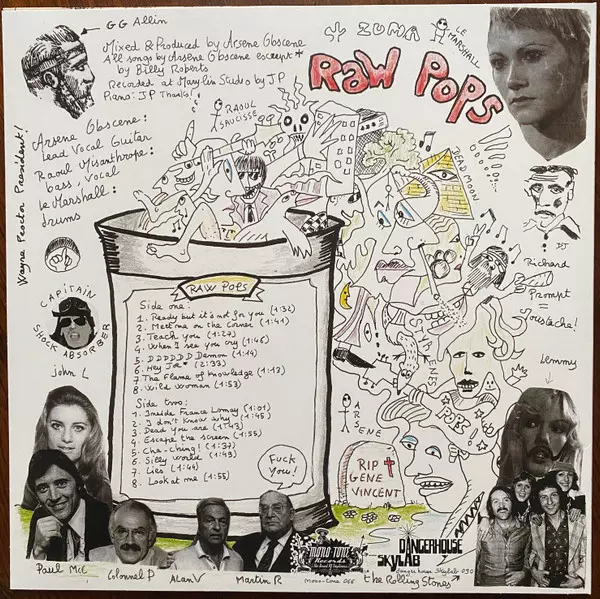 GG Allin
Mixed & Produced by Arsene Obscene
All songs by Arsene Obscene except *
by Billy Roberts
Recorded at Marylin Studio by JP
Piano: JP Thanks!
ZUMA
LE MARSHALL
RAW POPS
RAOUL SAUCISSE
Arsene Obscene:
Lead Vocal Guitar
Raoul Misanthrope:
bass, vocal
Le Marshall:
drums
Wayne Proctor President!
DEADMOON
DJ
Richard
Prompt
=
Moustache!
Lemmy
CAPITAIN
SHOCK ABSORBER
John L
RAW POPS
Side one:
1. Ready but it's not for you (1:32)
2. Meet me on the Corner (1:41)
3. Teach you (1:27)
4. When I see you cry (1:46)
5. DDDDDD Demon (1:14)
6. Hey Joe* (2:33)
7. The Flame of Knowledge (1:12)
8. Wild Woman (1:53)
Side two:
1. Inside France Lomay (1:01)
2. I don't know why (1:45)
3. Dead you are (1:43)
4. Escape the screen (1:55)
5. Cha-Ching! (1:37)
6. Silly World (1:49)
7. Lies (1:44)
8. Look at me (1:55)
Fuck you!
ARSENE
POPS
RIP
GENE
VINCENT
Paul McC
Colonnel P
Alan V
Martin R
MONO-TONE
Records
mono-tone 066
DANGERHOUSE
SKYLAB
dangerhouse skylab 030
the Rolling Stones